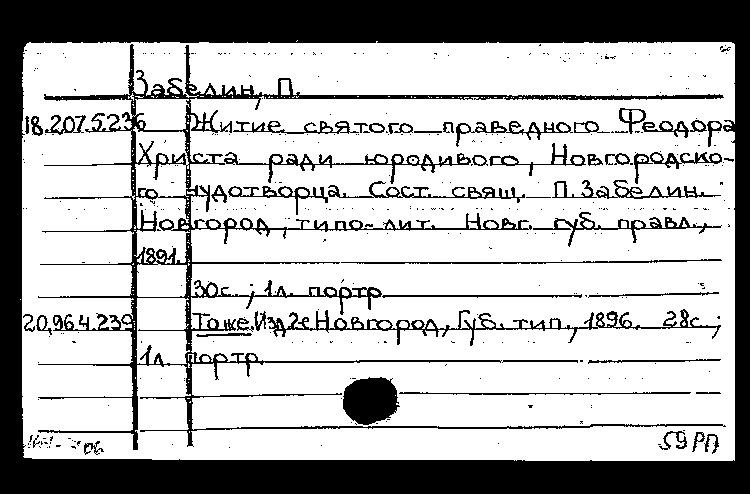 Забелин, П.
18.207.5.236 Житие святого праведного Феодора
Христа ради юродивого, Новгородско-
го чудотворца. Сост. свящ. П. Забелин.
Новгород, типо-лит. Новг. губ. правл.,
1891.
30с.; 1л. портр.
20.96.4.239 Тоже. Изд 2е. Новгород, Губ. тип., 1896. 28с.;
1л. портр.
59 РП